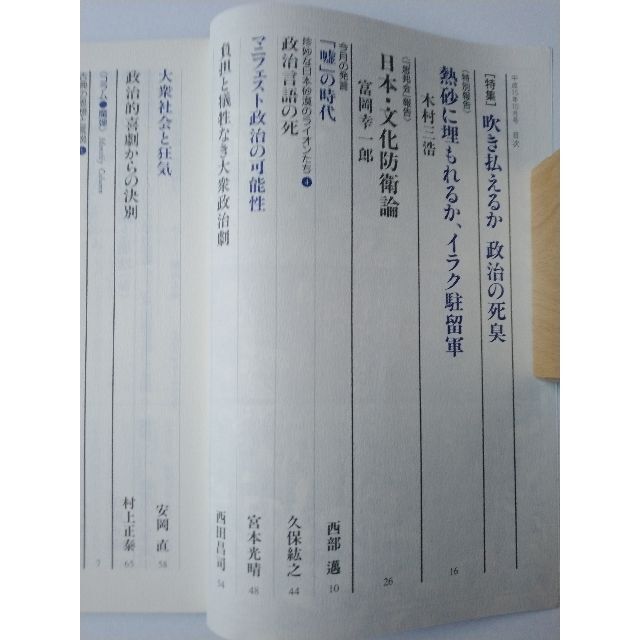 平成15年10月号 目次
[特集] 吹き払えるか 政治の死臭
〈特別報告〉
熱砂に埋もれるか、イラク駐留軍
木村三浩
16
日本・文化防衛論
富岡幸一郎
26
今月の発言
「嘘」の時代
西部 邁
10
珍妙な日本砂漠のライオンたち ④
政治言語の死
久保紘之
44
マニフェスト政治の可能性
宮本光晴
48
負担と犠牲なき大衆政治劇
西田昌司
54
大衆社会と狂気
安岡 直
58
政治的喜劇からの決別
村上正泰
65
Melody Column
7